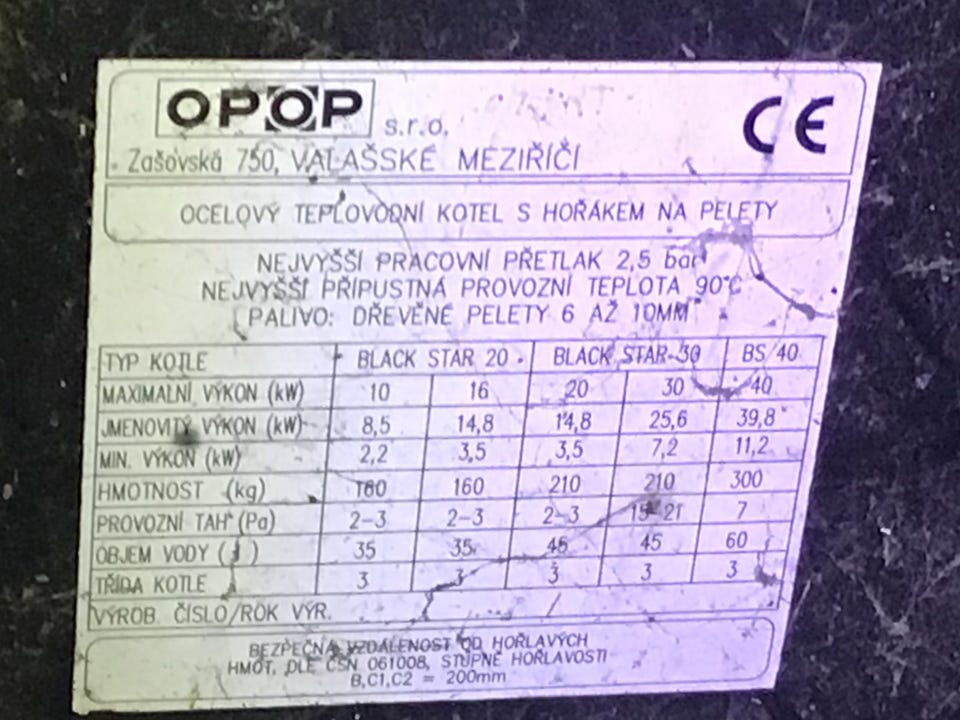 OPOP s.r.o.
CE
Zašovská 750, VALAŠSKÉ MEZIŘÍČÍ
OCELOVÝ TEPLOVODNÍ KOTEL S HOŘÁKEM NA PELETY
NEJVYŠŠÍ PRACOVNÍ PŘETLAK 2,5 bar
NEJVYŠŠÍ PŘÍPUSTNÁ PROVOZNÍ TEPLOTA 90°C
PALIVO: DŘEVĚNÉ PELETY 6 AŽ 10MM
TYP KOTLE BLACK STAR 20 BLACK STAR 30 BS 40
MAXIMALNÍ VÝKON (kW) 10 16 20 30 40
JMENOVITÝ VÝKON (kW) 8,5 14,8 14,8 25,6 39,8
MIN. VÝKON (kW) 2,2 3,5 3,5 7,2 11,2
HMOTNOST (kg) 160 160 210 210 300
PROVOZNÍ TAH (Pa) 2-3 2-3 2-3 15-21 7
OBJEM VODY (l) 35 35 45 45 60
TŘÍDA KOTLE 3 3 3 3 3
VÝROB. ČÍSLO/ROK VÝR. /
BEZPEČNÁ VZDÁLENOST OD HOŘLAVÝCH
HMOT, DLE ČSN 061008, STUPNĚ HOŘLAVOSTI
B,C1,C2 = 200mm